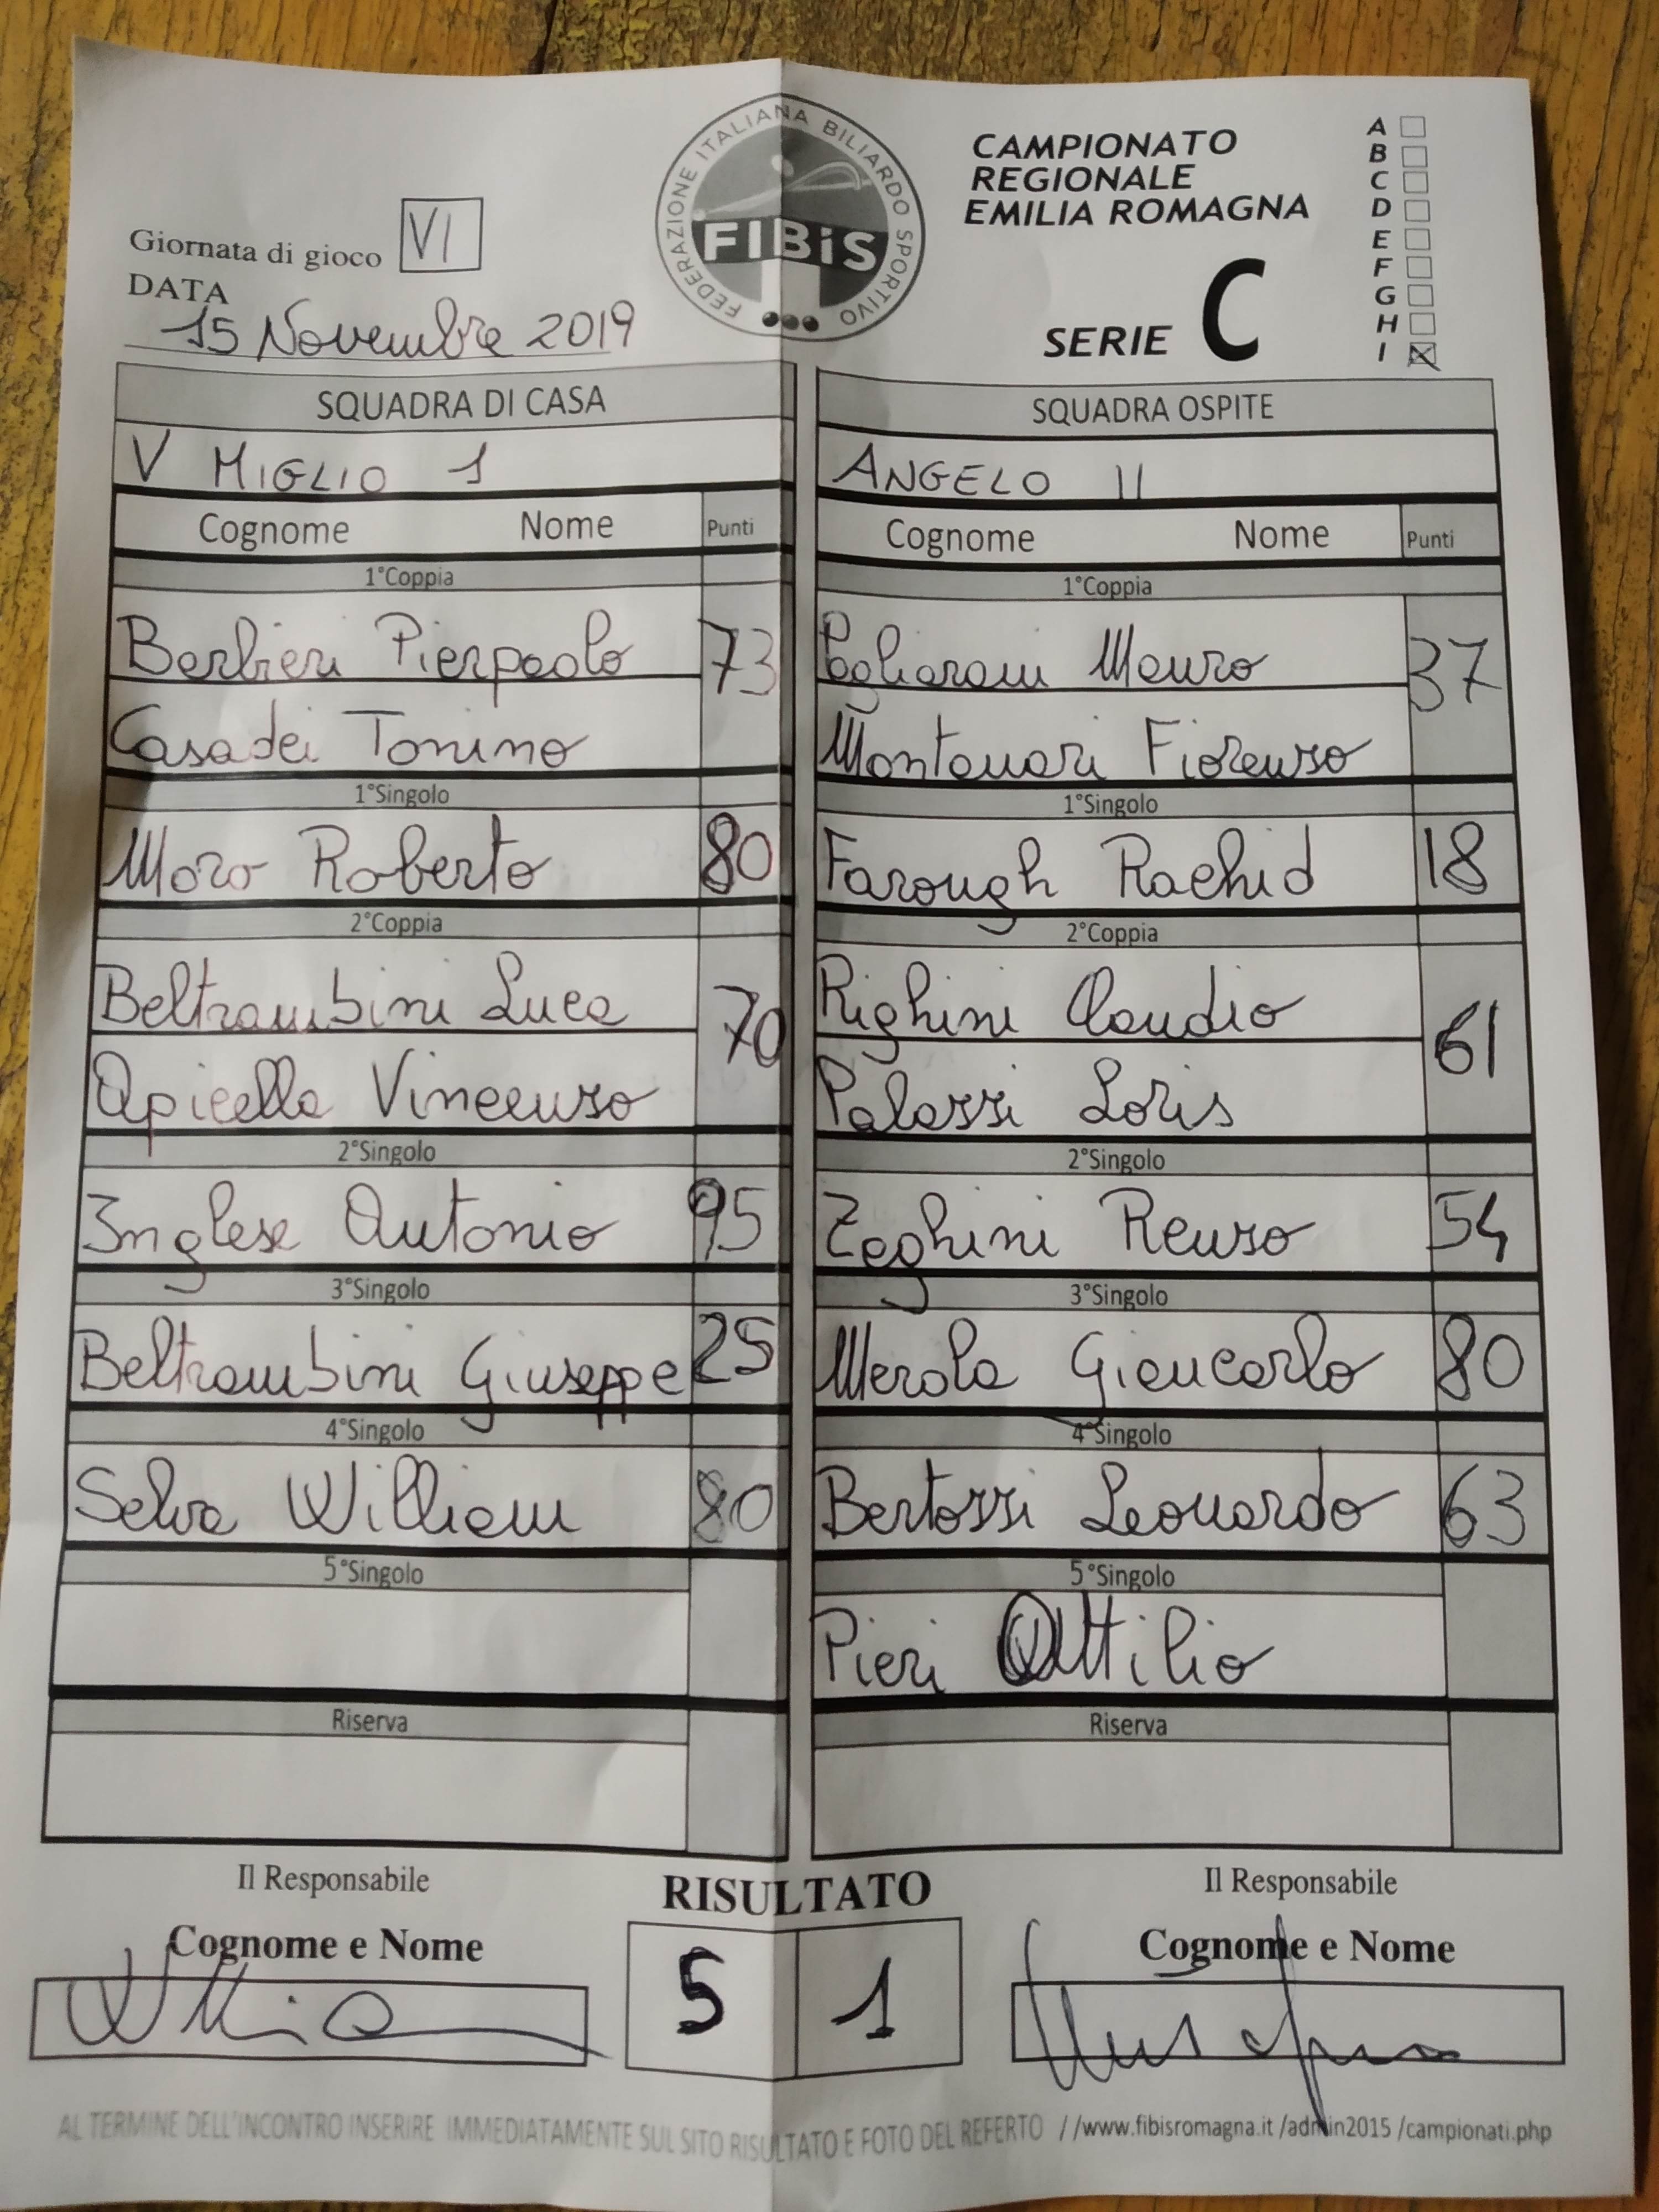 FEDERAZIONE ITALIANA BILIARDO SPORTIVO
FIBiS
CAMPIONATO
REGIONALE
EMILIA ROMAGNA
SERIE C
A
B
C
D
E
F
G
H
I
Giornata di gioco VI
DATA
15 Novembre 2019
SQUADRA DI CASA
V MIGLIO 1
Cognome Nome Punti
1°Coppia
Barbieri Pierpaolo 73
Casadei Tonino
1°Singolo
Moro Roberto 80
2°Coppia
Beltrambini Luca 70
Apicella Vincenzo
2°Singolo
Inglese Antonio 95
3°Singolo
Beltrambini Giuseppe 25
4°Singolo
Selva William 80
5°Singolo
Riserva
SQUADRA OSPITE
ANGELO II
Cognome Nome Punti
1°Coppia
Pagliarani Mauro 37
Montanari Fiorenzo
1°Singolo
Farough Rachid 18
2°Coppia
Righini Claudio 61
Palazzi Loris
2°Singolo
Zeghini Renzo 54
3°Singolo
Merola Giancarlo 80
4°Singolo
Bertozzi Leonardo 63
5°Singolo
Pieri Attilio
Riserva
Il Responsabile
Cognome e Nome
RISULTATO
5 1
Il Responsabile
Cognome e Nome
AL TERMINE DELL'INCONTRO INSERIRE IMMEDIATAMENTE SUL SITO RISULTATO E FOTO DEL REFERTO //www.fibisromagna.it /admin2015 /campionati.php